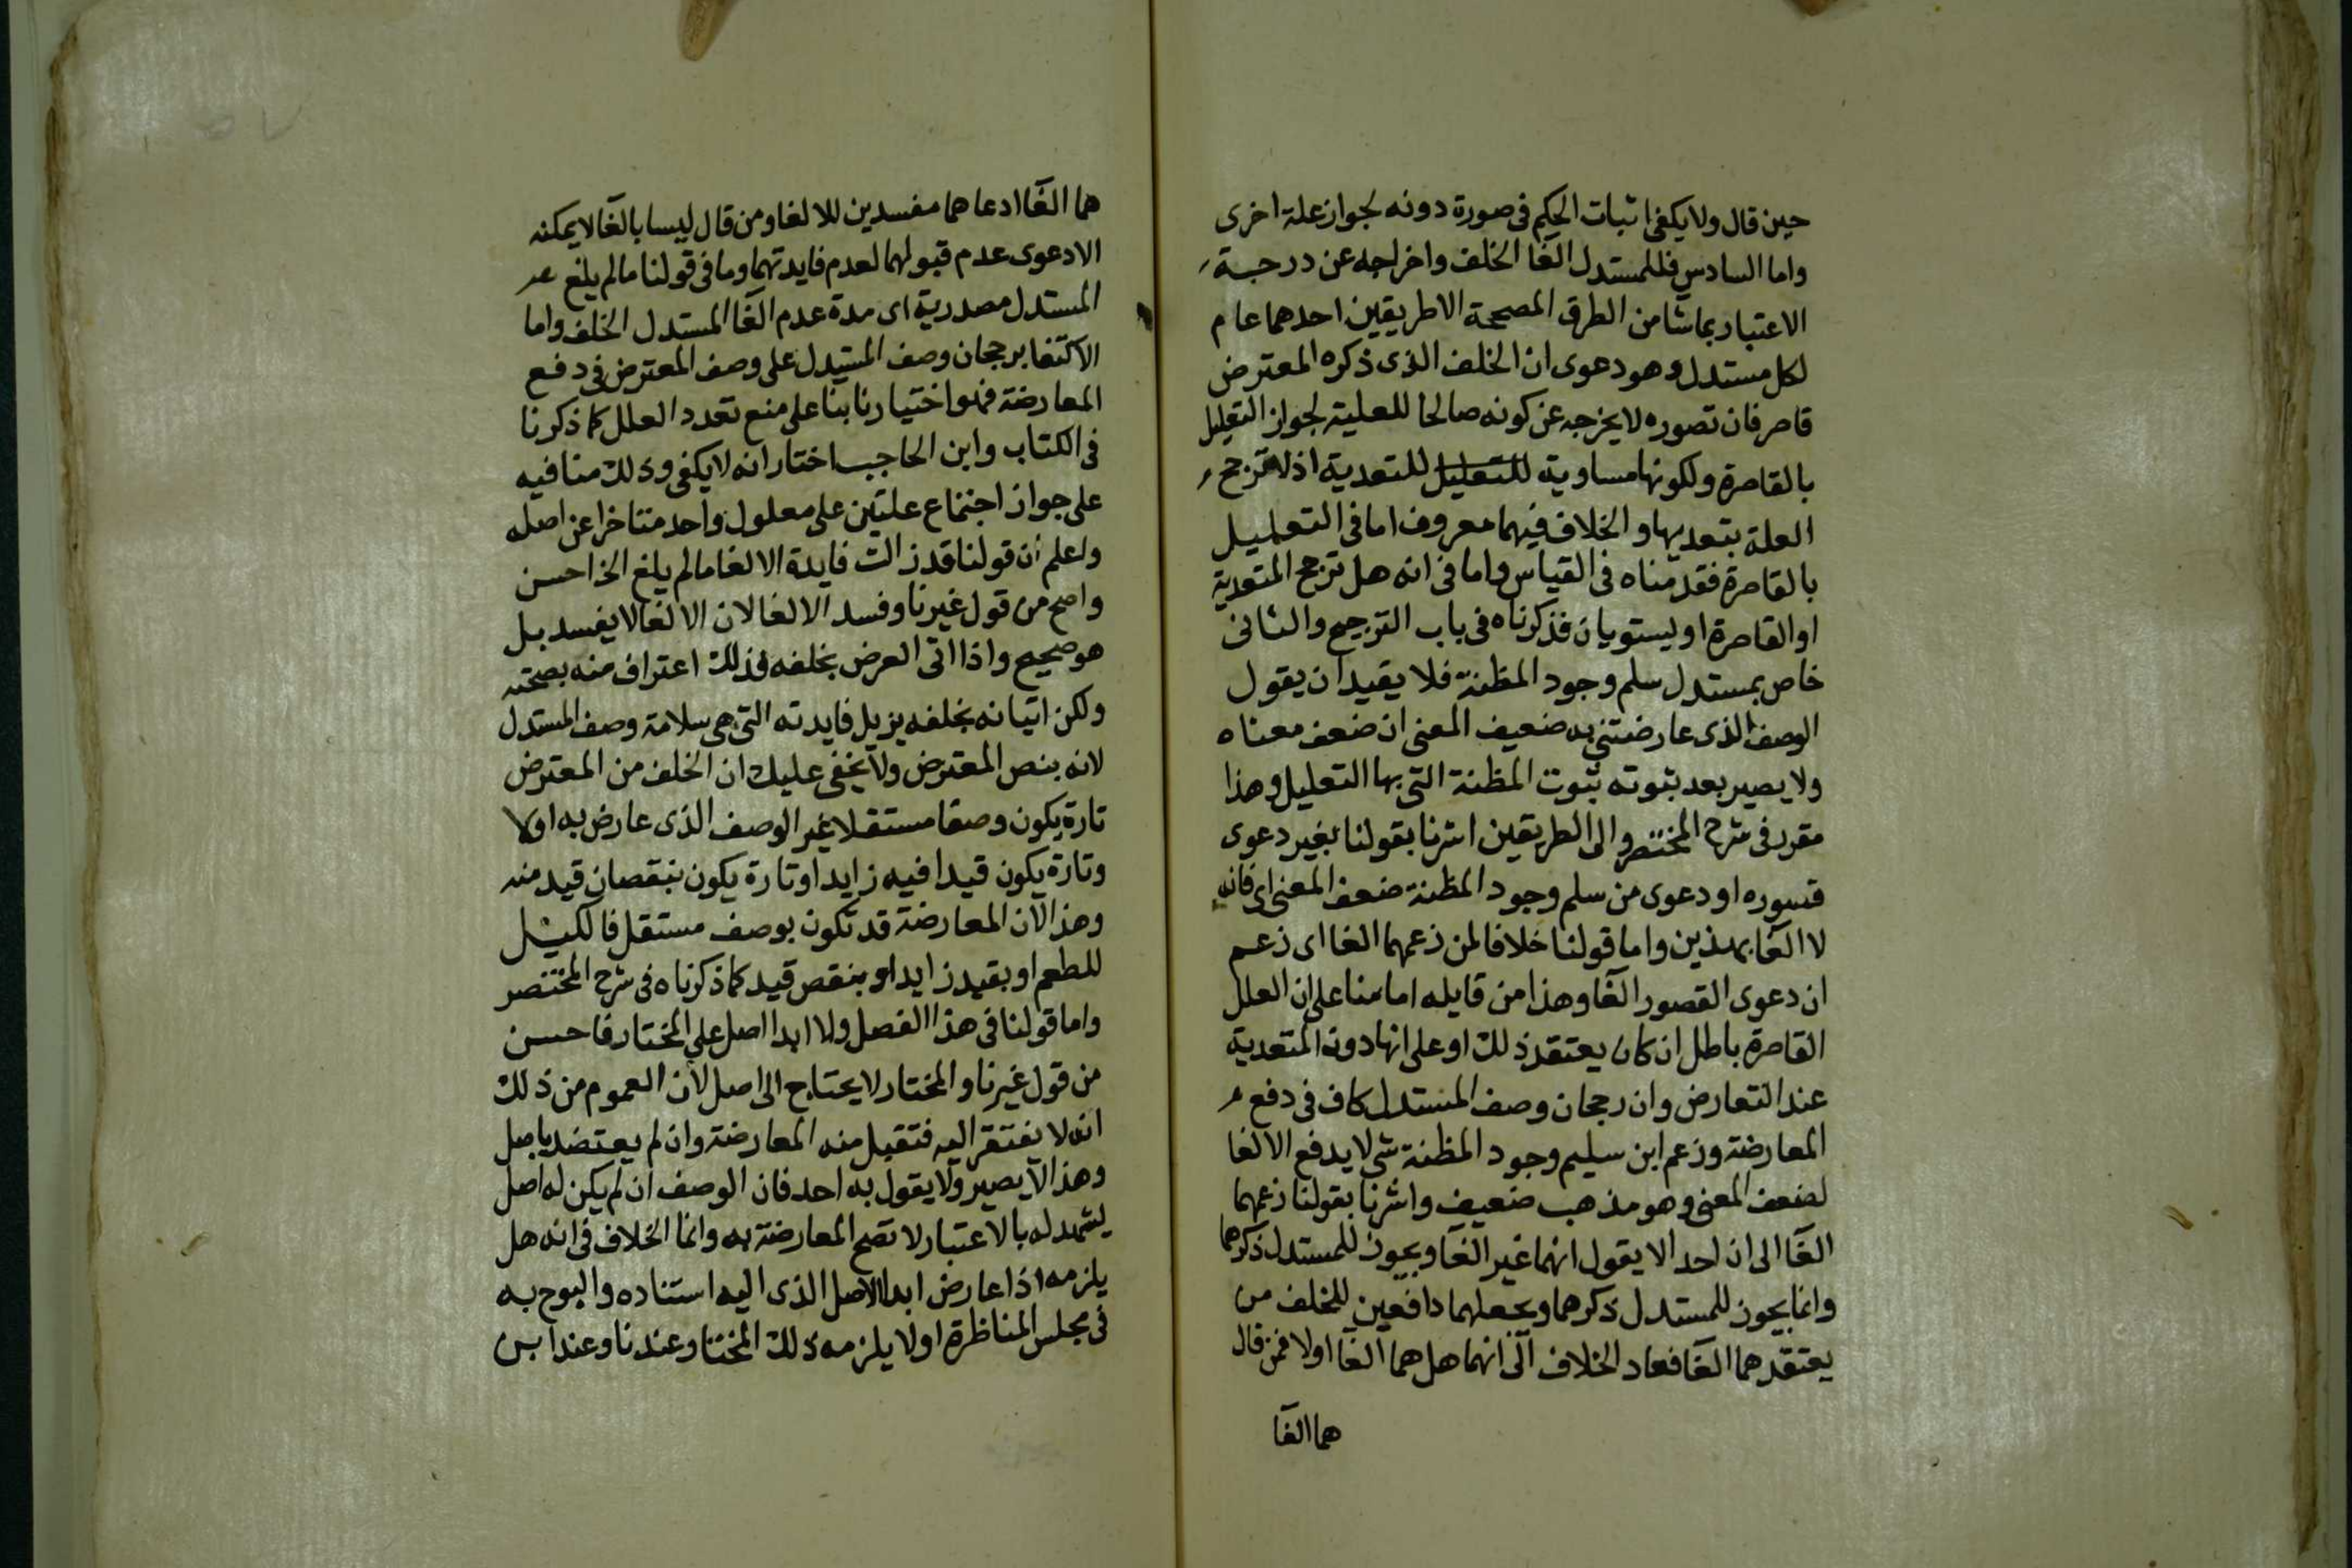 حين قال ولا يكفى اثبات الحكم فى صورة دونه لجواز علة اخرى
واما السادس فللمستدل الغآ الخلف واخراجه عن درجة
الاعتبار بما شا من الطرق المصححة الا طريقين احدهما عام
لكل مستدل وهو دعوى ان الخلف الذى ذكره المعترض
قاصر فان تصوره لا يخرجه عن كونه صالحا للعلية لجواز التعليل
بالقاصرة ولكونها مساوية للتعليل للمتعدية اذ لا ترجح
العلة بتعديها والخلاف فيهما معروف اما فى التعليل
بالقاصرة فقدمناه فى القياس واما فى انه هل ترجح المتعدية
او القاصرة او ليستويان فذكرناه فى باب الترجيح والثانى
خاص بمستدل سلم وجود المظنة فلا يفيد ان يقول
الوصف الذى عارضتنى به ضعيف المعنى ان ضعف معناه
ولا يصير بعد ثبوته ثبوت المظنة التى بها التعليل وهذا
مقرر فى شرح المختصر والى الطريقين اشرنا بقولنا بغير دعوى
قسوره او دعوى من سلم وجود المظنة ضعف المعنى اى فانه
لا الغآ بهذين واما قولنا خلافا لمن زعمهما الغا اى زعم
ان دعوى القصور الغآ وهذا من قايله اما بنا على ان العلل
القاصرة باطل ان كان يعتقد ذلك او على انها دون المتعدية
عند التعارض وان رجحان وصف المستدل كاف فى دفع
المعارضة وزعم ابن سليم وجود المظنة شى لا يدفع الالغا
لضعف المعنى وهو مذهب ضعيف واشرنا بقولنا زعمهما
الغآ الى ان احدا لا يقول انهما غير الغآ ويجوز للمستدل ذكرهما
وانما يجوز للمستدل ذكرهما ويجعلهما دافعين للخلف من
يعتقدهما الغآ فعاد الخلاف الى انهما هل هما الغآ اولا فمن قال
هما الغآ
هما الغآ ادعاهما مفسدين للالغا ومن قال ليسا بالغآ لا يمكنه
الا دعوى عدم قبولهما لعدم فايدتهما وما فى قولنا ما لم يلغ
المستدل مصدرية اى مدة عدم الغآ المستدل الخلف واما
الاكتفا برجحان وصف المستدل على وصف المعترض فى دفع
المعارضة فهو اختيارنا بنا على منع تعدد العلل كما ذكرنا
فى الكتاب وابن الحاجب اختار انه لا يكفى وذلك منا فيه
على جواز اجتماع علتين على معلول واحد متاخرا عن اصله
واعلم ان قولنا قد زالت فايدة الالغا ما لم يلغ الخ احسن
واصح من قول غيرنا وفسد الالغا لان الالغا لا يفسد بل
هو صحيح واذا اتى العرض بخلفه فذلك اعتراف منه بصحته
ولكن اتيانه بخلفه يزيل فايدته التى هى سلامة وصف المستدل
لانه بنص المعترض ولا يخفى عليك ان الخلف من المعترض
تارة يكون وصفا مستقلا غير الوصف الذى عارض به اولا
وتارة يكون قيدا فيه زايدا وتارة يكون بنقصان قيد منه
وهذا لان المعارضة قد تكون بوصف مستقل فالكيل
للطعم او بقيد زايد او بنقص قيد كما ذكرناه فى شرح المختصر
واما قولنا فى هذا الفصل ولا ابدا اصل على المختار فاحسن
من قول غيرنا والمختار لا يحتاج الى اصل لان العموم من ذلك
انه لا يفتقر اليه فتقبل منه المعارضة وان لم يعتضد باصل
وهذا لا يصير ولا يقول به احد فان الوصف ان لم يكن له اصل
يشهد له بالاعتبار لا تصح المعارضة به وانما الخلاف فى انه هل
يلزمه اذا عارض ابدا الاصل الذى اليه استناده والبوح به
فى مجلس المناظرة اولا يلزمه ذلك المختار عندنا وعند ابن